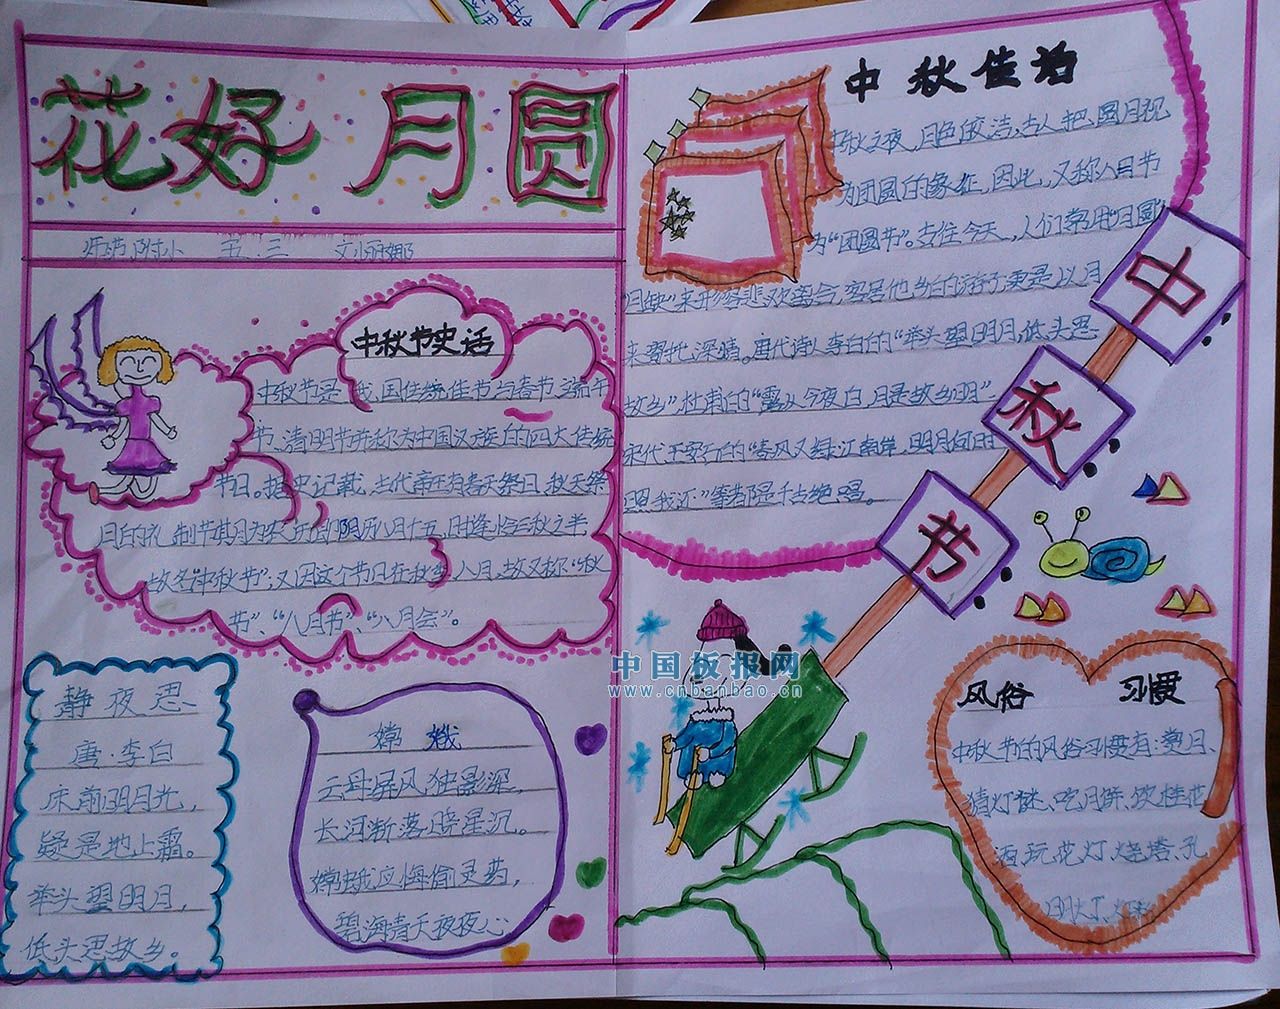 花好月圆
师范附小 五.三 文丽娜
中秋节史话
中秋节是我国传统佳节与春节、端午
节、清明节并称为中国汉族的四大传统
节日。据史记载,古代帝王有春天祭日、秋天祭
月的礼制节期为农历即阴历八月十五,时逢恰三秋之半,
故名"中秋节";又因这个节日在秋季、八月,故又称"秋
节"、"八月节"、"八月会"。
静夜思
唐·李白
床前明月光,
疑是地上霜。
举头望明月,
低头思故乡。
嫦娥
云母屏风独影深,
长河渐落晓星沉。
嫦娥应悔偷灵药,
碧海青天夜夜心
中秋佳话
中秋之夜,月色皎洁,古人把圆月视
为团圆的象征,因此,又称八月节
为"团圆节"。古往今天,人们常用"月圆
月缺"来形容悲欢离合,客居他乡的游子更是以月
来寄托深情。唐代诗人李白的"举头望明月,低头思
故乡",杜甫的"露从今夜白,月是故乡明"
宋代王安石的"春风又绿江南岸,明月何时
照我还"等都是千古绝唱。
中秋节
中国板报网
www.cnbanbao.cn
风俗 习惯
中秋节的风俗习惯有:赏月、
猜灯谜、吃月饼、饮桂花
酒玩花灯烧塔、孔
明灯